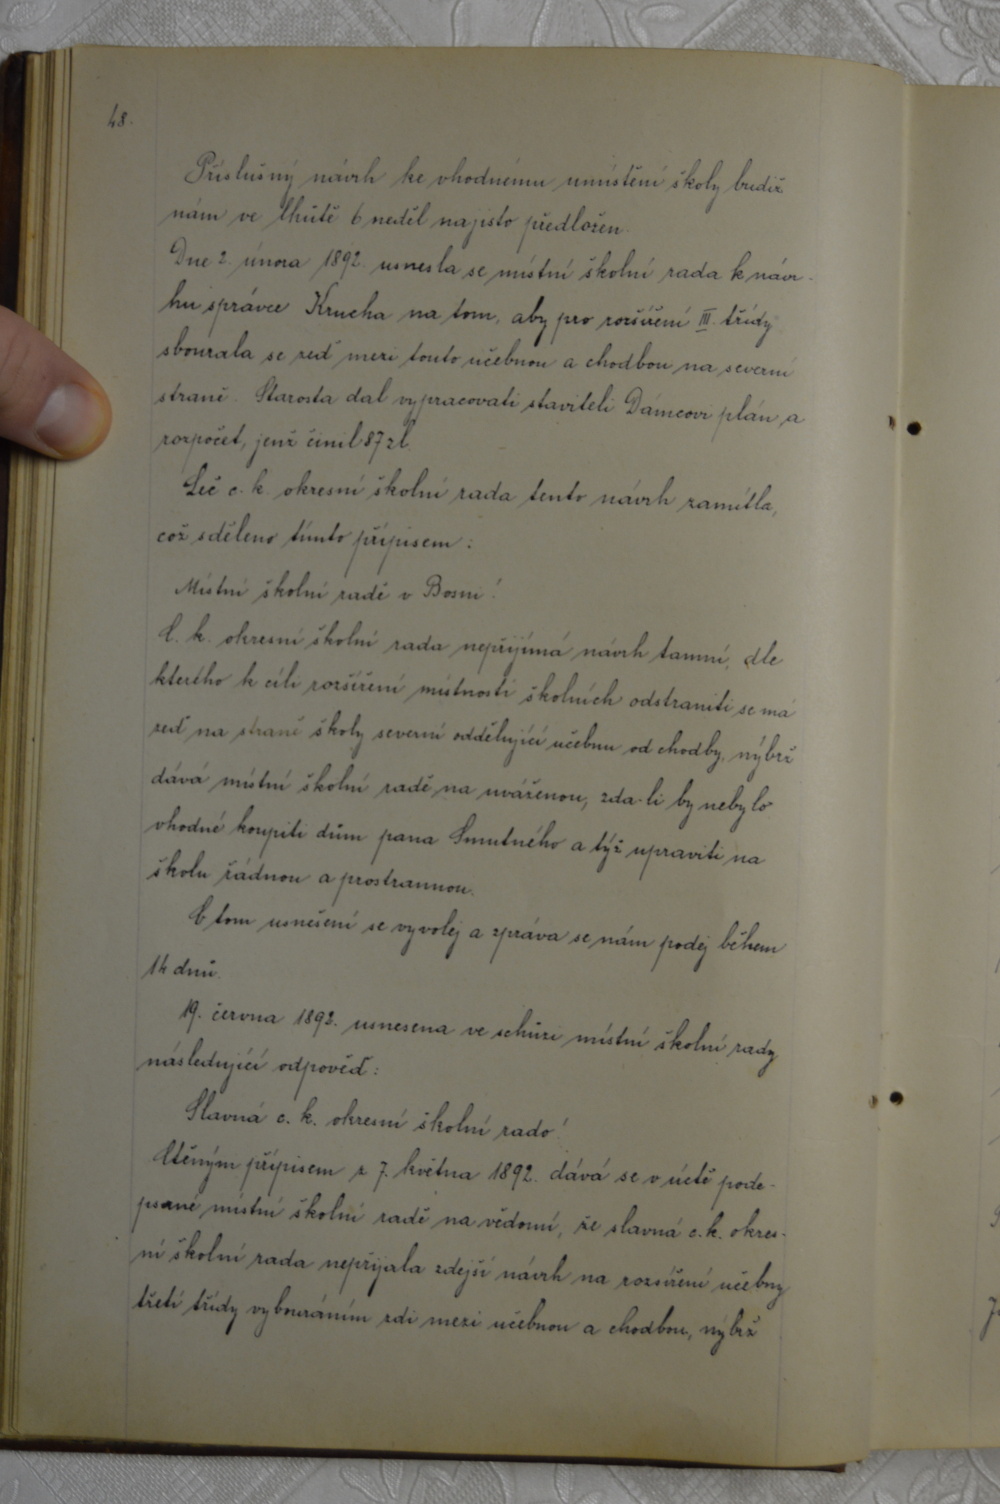 48.
Příslušný návrh ke vhodnému umístění školy budiž
nám ve lhůtě 6 neděl najisto předložen.
Dne 2. února 1892. usnesla se místní školní rada k návr-
hu správce Krucha na tom, aby pro rozšíření III. třídy
sbourala se zeď mezi touto učebnou a chodbou na severní
straně. Starosta dal vypracovati staviteli Dámcovi plán a
rozpočet, jenž činil 87 zl.
Leč c. k. okresní školní rada tento návrh zamítla,
což sděleno tímto přípisem:
Místní školní radě v Bosni!
C. k. okresní školní rada nepřijímá návrh tamní, dle
kterého k cíli rozšíření místností školních odstraniti se má
zeď na straně školy severní oddělující učebnu od chodby, nýbrž
dává místní školní radě na uváženou, zda-li by nebylo
vhodné koupiti dům pana Smutného a týž upraviti na
školu řádnou a prostrannou.
O tom usnešení se vyvolej a zpráva se nám podej během
14 dnů.
19. června 1892. usnesena ve schůzi místní školní rady
následující odpověď:
Slavná c. k. okresní školní rado!
Ctěným přípisem z 7. května 1892. dává se v úctě pode-
psané místní školní radě na vědomí, že slavná c. k. okres-
ní školní rada nepřijala zdejší návrh na rozšíření učebny
třetí třídy vybouráním zdi mezi učebnou a chodbou, nýbrž